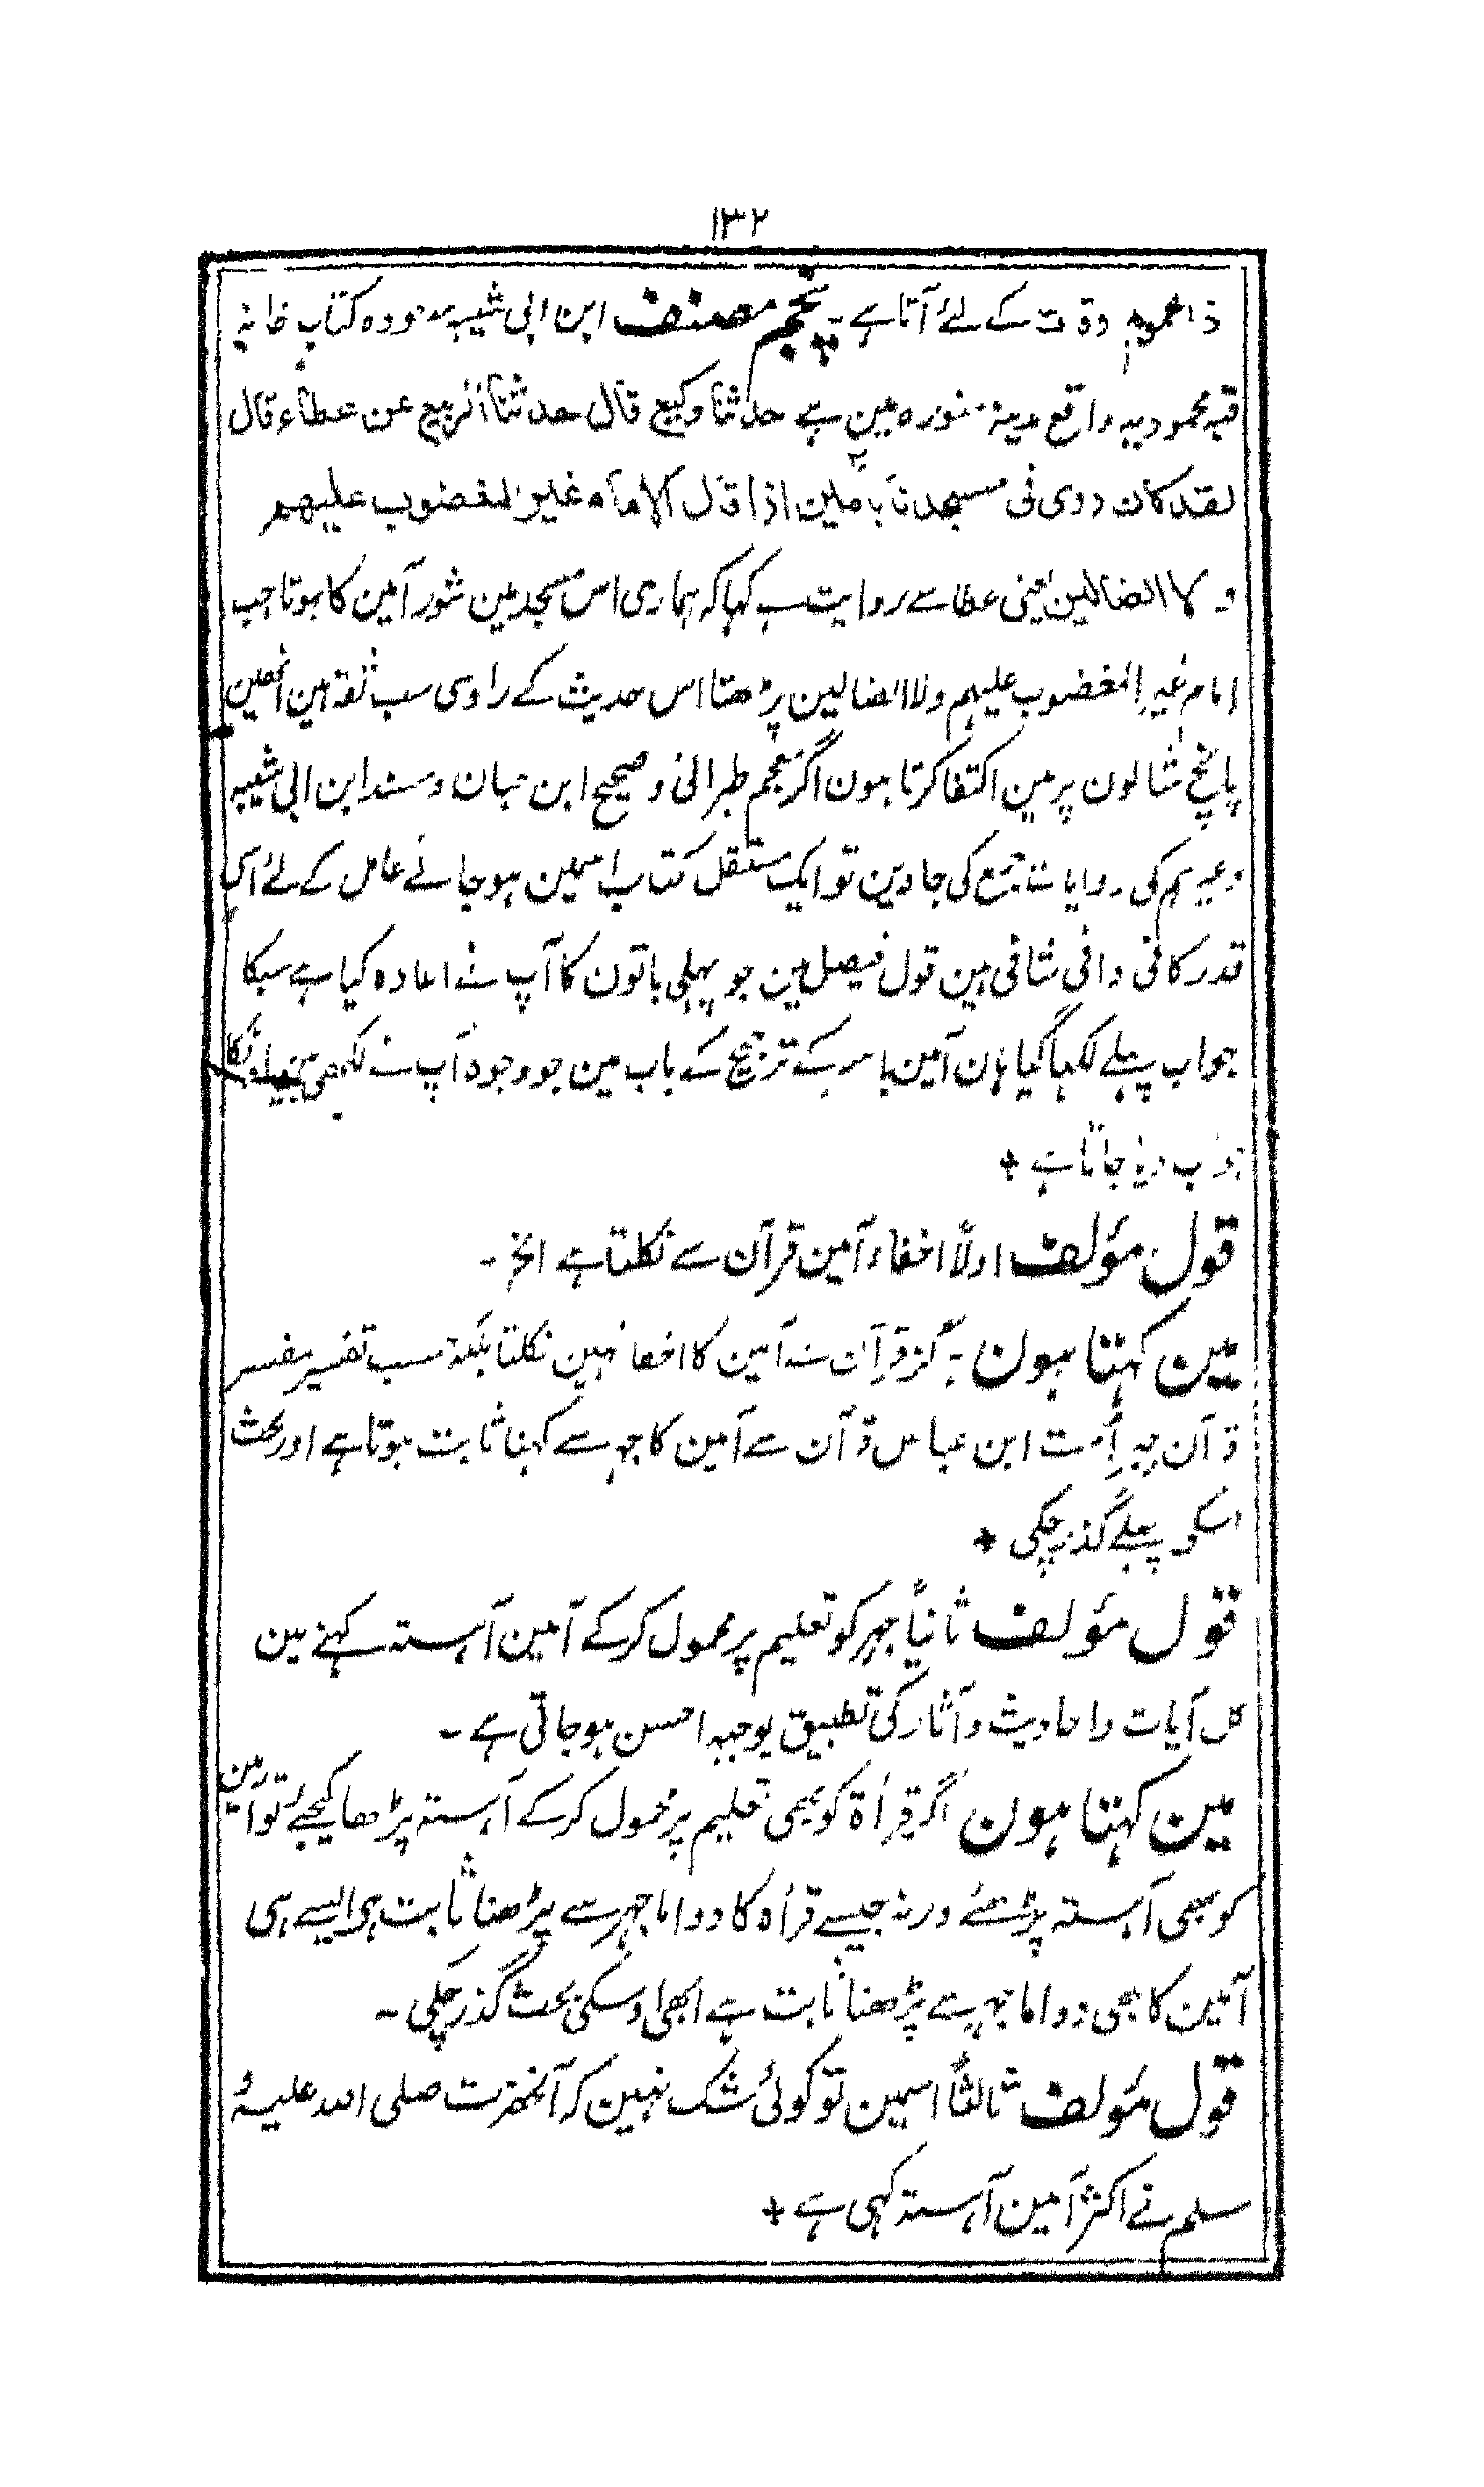 ۱۳۲
وقت کے لئے آتا ہے۔ پنجم مصنف ابن ابی شیبہ موجودہ کتاب خانہ
قبہ محمودیہ واقع مدینہ منورہ مین ہے حدثنا وکیع قال حدثنا الربیع عن عطاء قال
لقد کان دوی فی مسجدنا بآمین اذا قال الامام غیر المغضوب علیھم
ولا الضالین یعنی عطا سے روایت ہے کہا کہ ہماری اس مسجد مین شور آمین کا ہوتا جب
امام غیر المغضوب علیہم ولا الضالین پڑھتا اس حدیث کے راوی سب ثقہ ہین انھین
پانچ مثالون پر مین اکتفا کرتا ہون اگر معجم طبرانی و صحیح ابن حبان و مسند ابن ابی شیبہ
وغیرہم کی روایات جمع کی جاوین تو ایک مستقل کتاب اسمین ہو جائے عامل کے لئے اسی
قدر کافی وافی شافی ہین قول فیصل مین جو پہلی باتون کا آپ نے اعادہ کیا ہے سبکا
جواب پہلے لکہا گیا ہان آمین بالسر کے ترجیح کے باب مین جو وجوہ آپ نے لکھی ہین اونکا
جواب دیا جاتا ہے +
قول مؤلف اولاً اخفاء آمین قرآن سے نکلتا ہے الخ۔
مین کہتا ہون ہرگز قرآن سے آمین کا اخفا نہین نکلتا بلکہ حسب تفسیر مفسر
قرآن حبر امت ابن عباس قرآن سے آمین کا جہر سے کہنا ثابت ہوتا ہے اور بحث
اسکی پہلے گذر چکی +
قول مؤلف ثانیاً جہر کو تعلیم پر محمول کر کے آمین آہستہ کہنے مین
کل آیات و احادیث و آثار کی تطبیق بوجہ احسن ہو جاتی ہے۔
مین کہتا ہون اگر قرأۃ کو بھی تعلیم پر محمول کر کے آہستہ پڑھا کیجئے تو آمین
کو بھی آہستہ پڑھئے ورنہ جیسے قرأۃ کا دواما جہر سے پڑھنا ثابت ہی ایسے ہی
آمین کا بھی دواما جہر سے پڑھنا ثابت ہے ابھی اوسکی بحث گذر چکی۔
قول مؤلف ثالثاً اسمین تو کوئی شک نہین کہ آنحضرت صلی اللہ علیہ و
سلم نے اکثر آمین آہستہ کہی ہے +